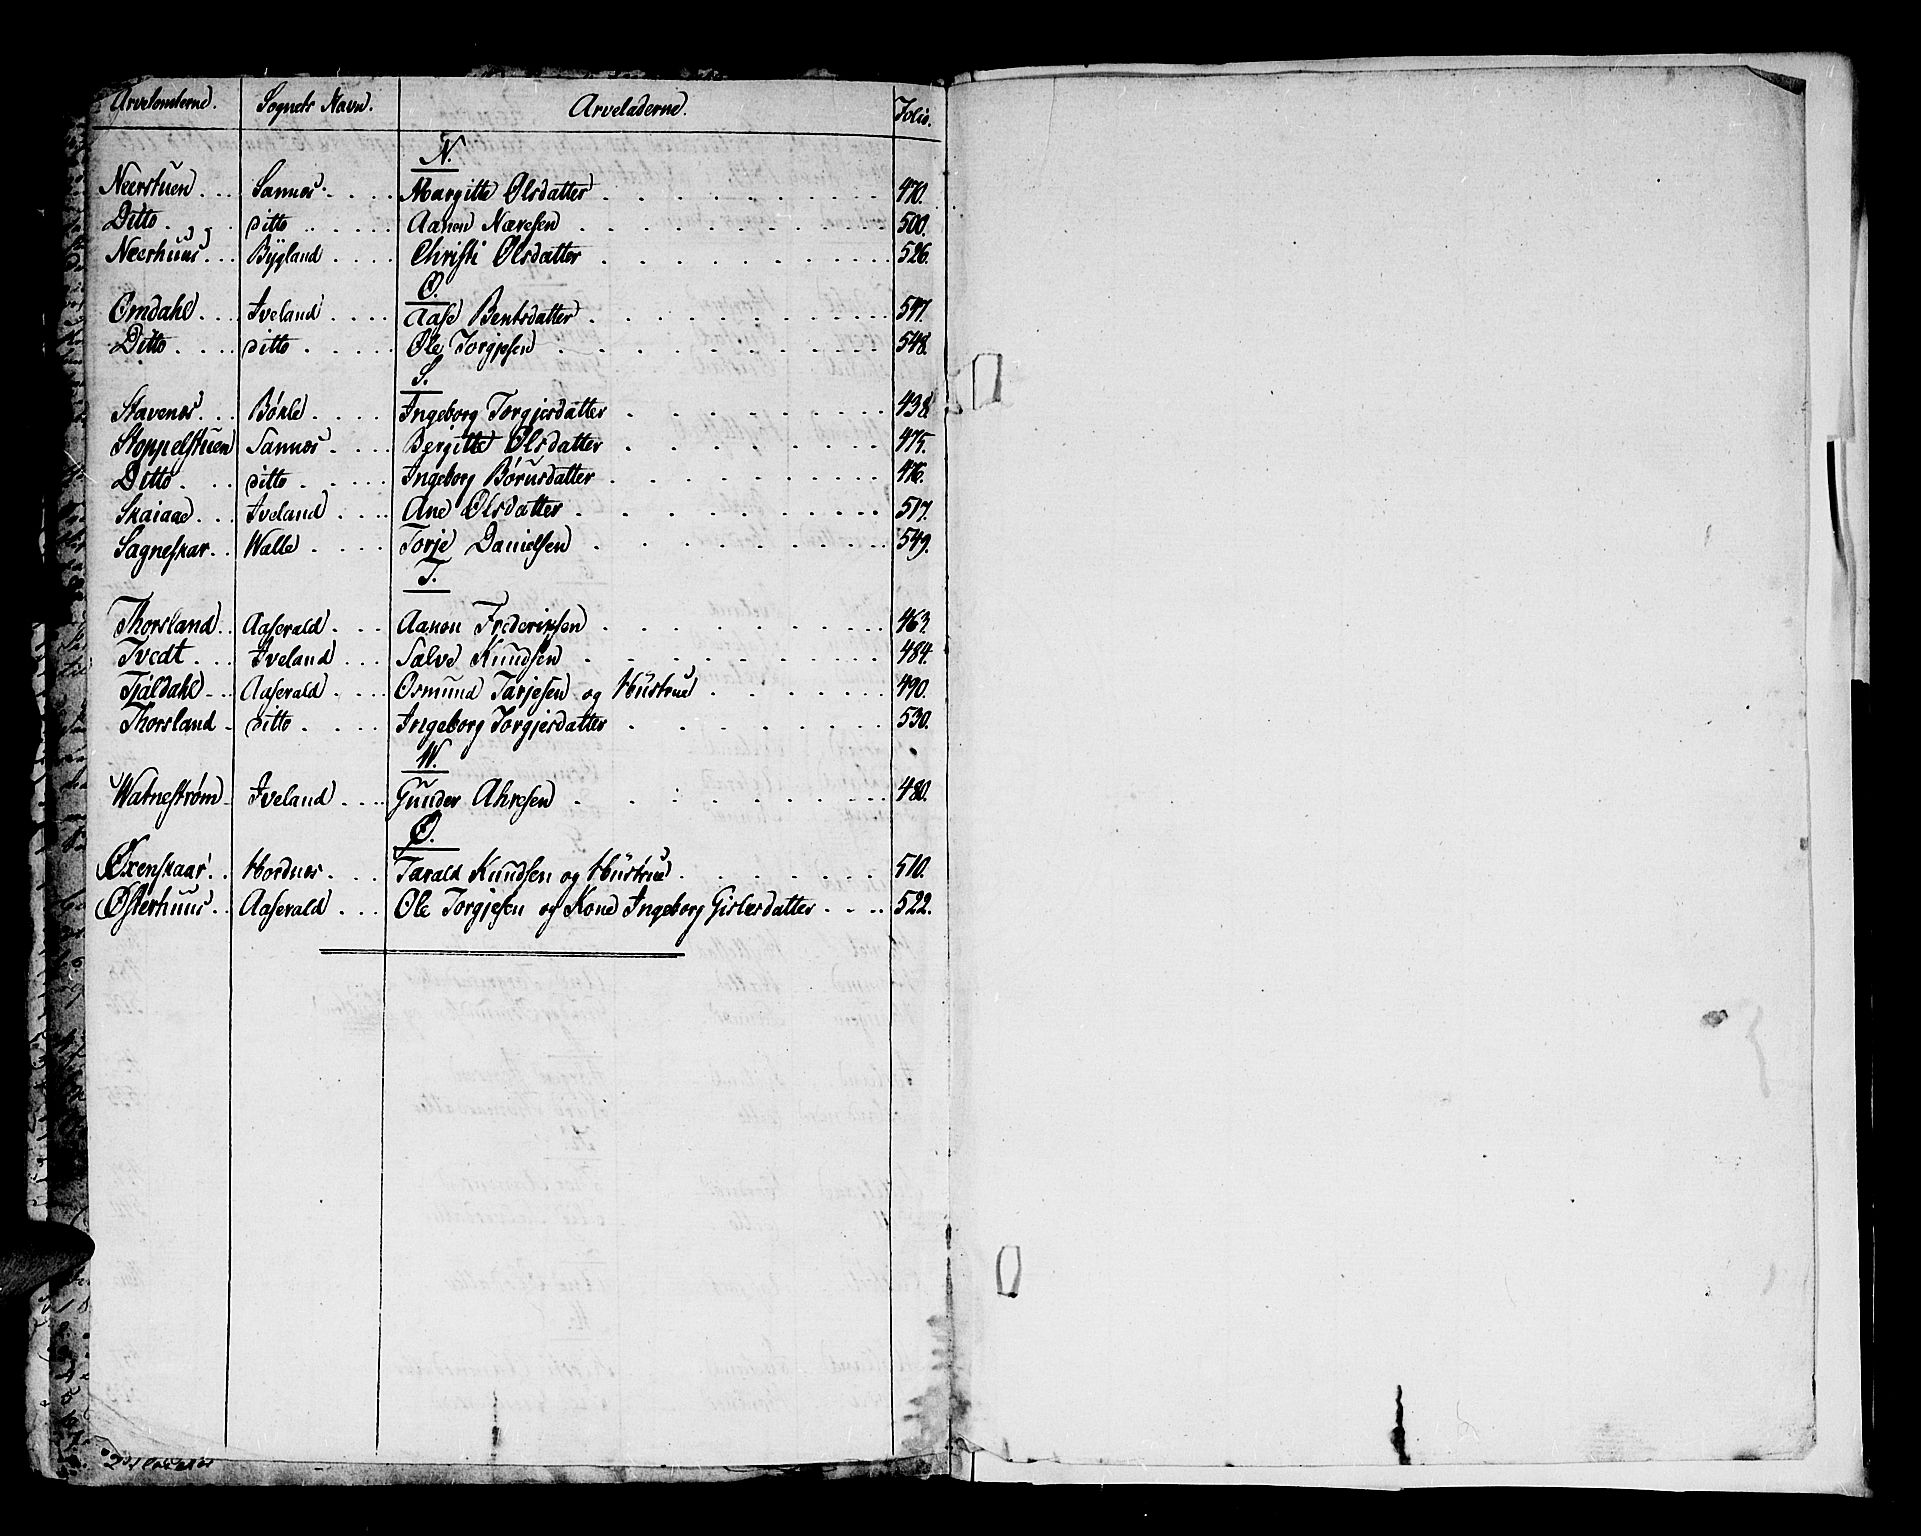 Arvetomterne. Sognets Navn. Arveladerne. Folio.
N.
Neerstuen . . . Sannes . . . . Margitte Olsdatter . . . . . . . . . 470.
Ditto . . . ditto . . . . . Aanon Næresen . . . . . . . . . 500.
Neerhuus . . . Bÿgland . . . . Christi Olsdatter . . . . . . . . . 526.
O.
Omdahl . . . Iveland . . . . Aase Bentsdatter . . . . . . . . . 547.
Ditto . . . . ditto . . . . Ole Torgjesen . . . . . . . . . 548.
S.
Stavenes . . . Bÿkle . . . . Ingeborg Torgjesdatter . . . . . . . . 438.
Stoppelstuen Sannes . . . . Bergitte Olsdatter . . . . . . . . 475.
Ditto . . . ditto . . . . Ingeborg Börusdatter . . . . . . . . 476.
Skaiaae . . . Iveland . . . . Ane Olsdatter . . . . . . . . . 517.
Sagneskar . . Walle . . . . Torje Danielsen . . . . . . . . . 549.
T.
Thorsland . . Aaserald . . . Aanon Frederipsen . . . . . . . . 463.
Tvedt . . . Iveland . . . Salve Knudsen . . . . . . . . . 484.
Tjäldahl . . Aaserald . . . Osmund Tarjesen og Hüstrue . . . . . . . 490.
Thorsland . ditto . . . . Ingeborg Torgjesdatter . . . . . . . 530.
W.
Watneström . Iveland . . . . Gunder Ahresen . . . . . . . . . 480.
Ø.
Øxenskaar . . Hordnes . . . . Tarald Knudsen og Hüstrue . . . . . . . 510.
Østerhuus . . Aaserald . . . Ole Torgjesen og Kone Ingeborg Gislesdatter . . . . 522.